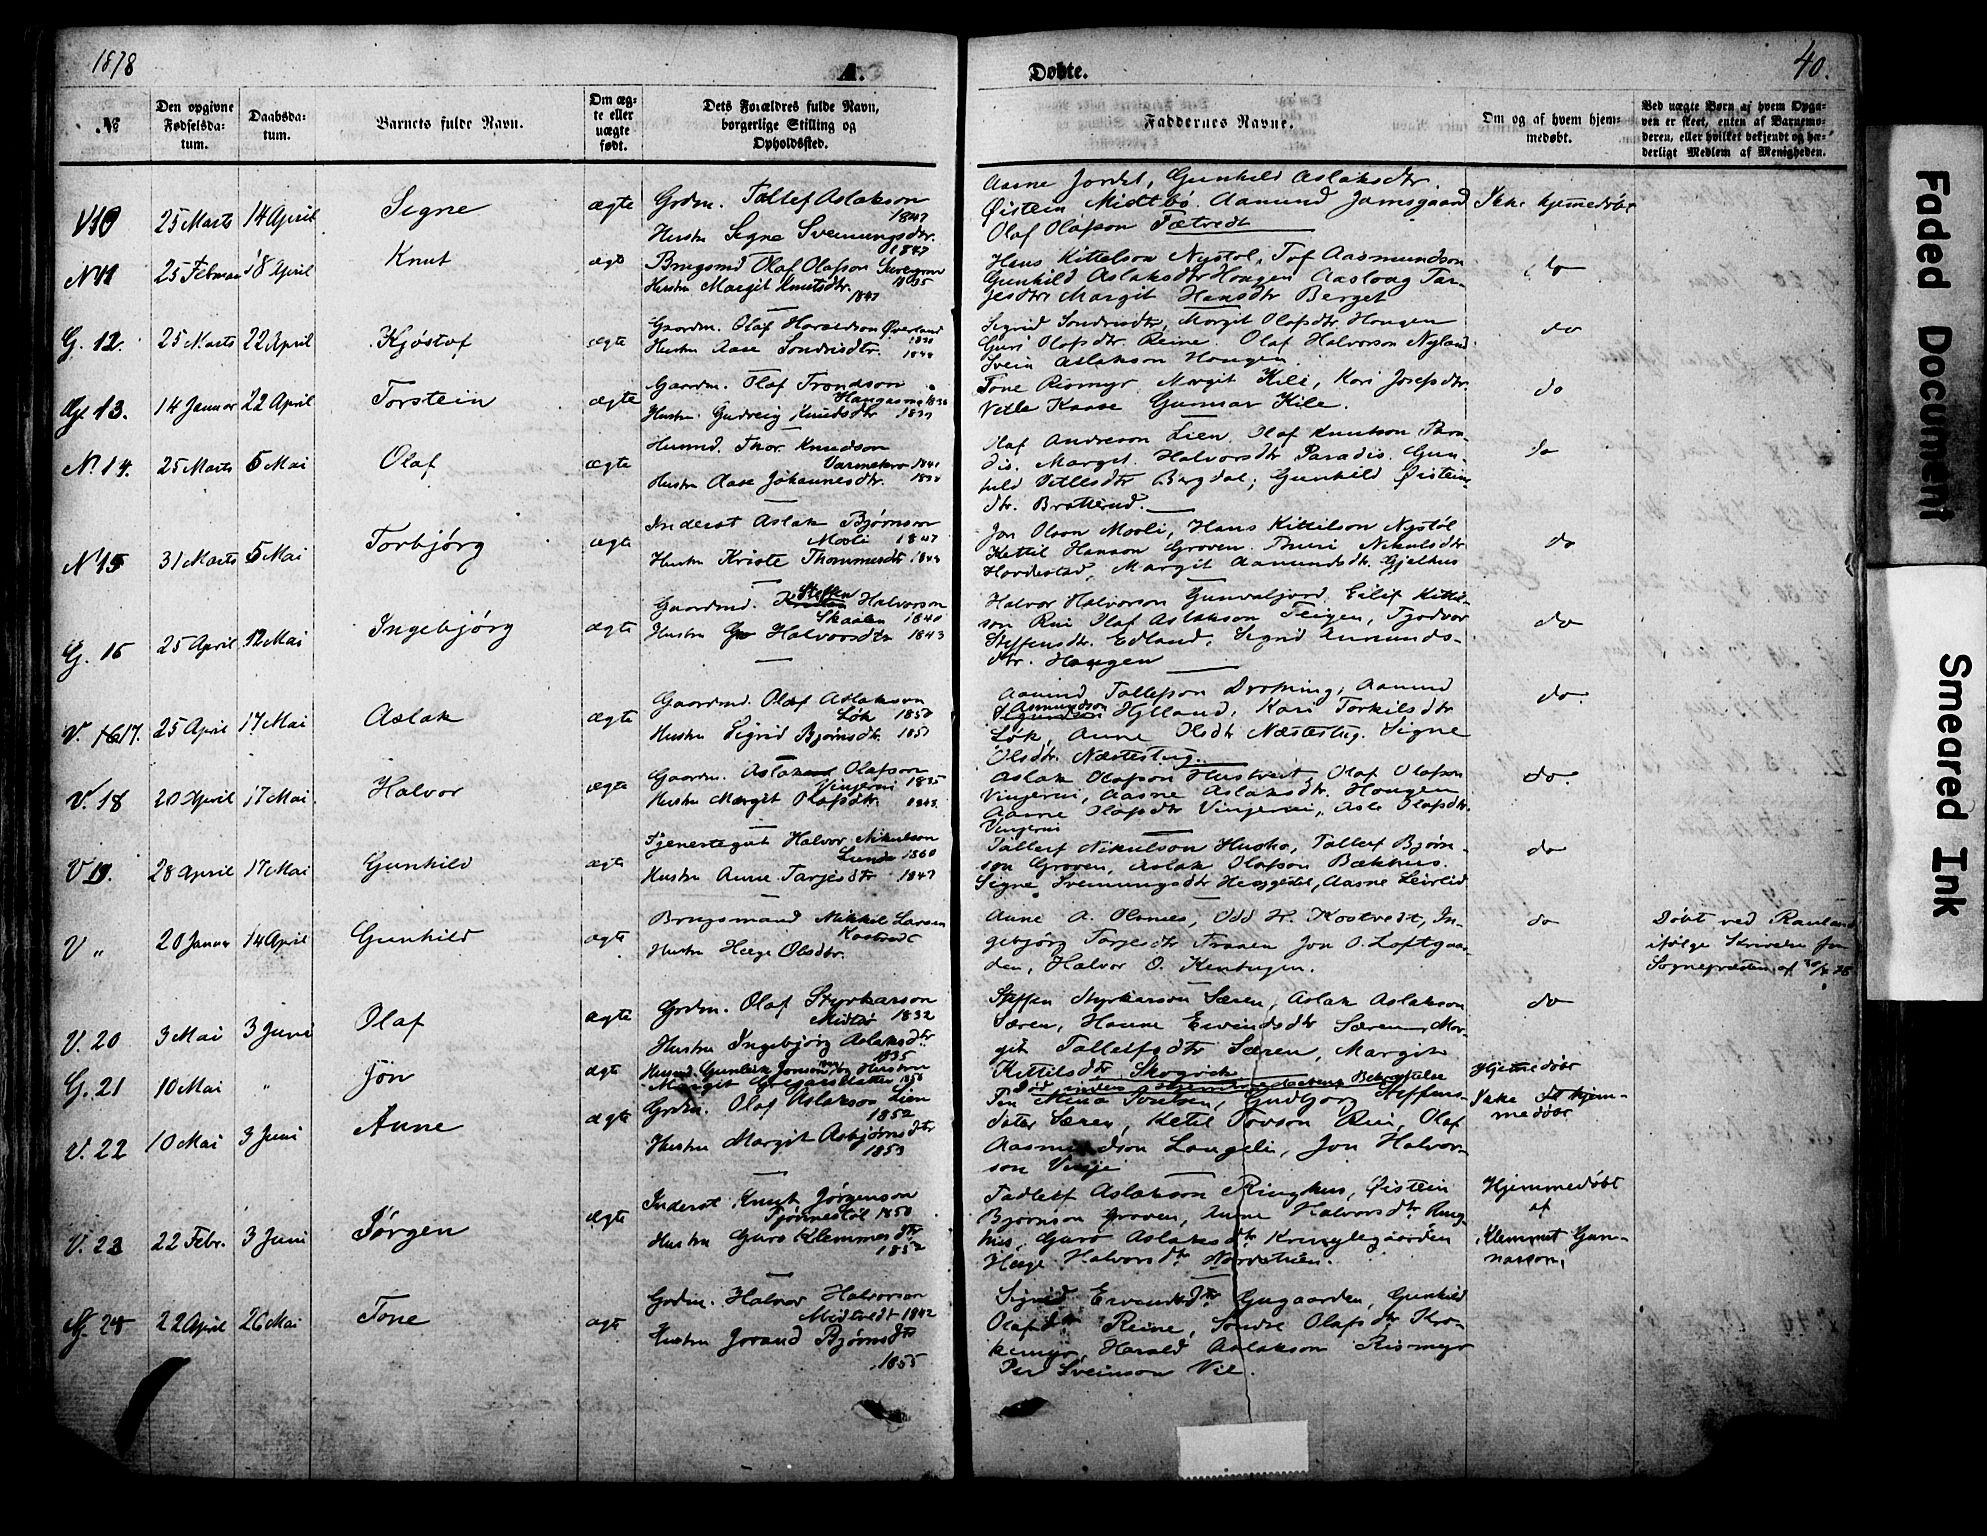 1878
A.
Døbte.
40.
№
Den opgivne Fødselsdatum.
Daabsdatum.
Barnets fulde Navn.
Om ægte eller uægte født.
Dets Forældres fulde Navn, borgerlige Stilling og Opholdssted.
Faddernes Navne.
Om og af hvem hjemmedøbt.
Ved uægte Børn af hvem Opgaven er skeet, enten af Barnemoderen, eller hvilket bekjendt og hæderligt Medlem af Menigheden.
V10 25 Marts 14 April Signe ægte Grdm. Tallef Aslakson 1847
Hustru Signe Sveinungsdtr. 1847
Aasne Jordet, Gunhild Aslaksdtr.
Øistein Midtbø. Aamund Jamsgaard
Olaf Olafson Tætvedt
Ikke hjemmedøbt
N 11 25 Februar 18 April Knut ægte Brugsmd Olaf Olafson 1835
Hustru Margit Knutsdtr. 1847
Hans Kittelson Nystøl, Tof Aasmundson
Gunhild Aslaksdtr Haugen Aaslaug Tar-
jesdtr Margit Hansdtr Berget
do
G. 12. 25 Marts 22 April Kjøstof ægte Gaardm. Olaf Haraldson Øverland
Hustru Aase Sondresdtr. 1844
Sigrid Sondresdtr, Margit Olafsdtr. Haugen
Guri Olafsdtr. Reine. Olaf Halvorson Nyland
Svein Aslakson Haugen
do
13. 14 Januar 22 April Torstein ægte Gaardm. Olaf Trondson
Haugasme 1836
Hustru Gudveig Knudsdtr 1837
Tone Rismyr Margit Kile, Kari Josefsdtr.
Vetle Kaase Gunnar Kile.
do
N. 14. 25 Marts 5 Mai Olaf ægte Husmd. Thor Knudson
1841
Hustru Aase Johannesdtr.
Olaf Andreson Lien. Olaf Knutson Thor-
dis. Margit Halvorsdtr Paradis. Gun-
hild Vetlesdtr Bergdal; Gunhild Øisteins
dtr. Bratterud.
do
N 15 31 Marts 5 Mai Torbjørg ægte Inderst Aslak Bjørnson
Mosli 1847
Hustru Kriste Thommesdtr. 1844
Jon Olson Mosli, Hans Kittilson Nystøl
Kettil Hanson Groven. Thuri Nikulsdtr
Hardestad, Margit Aamundsdtr. Gjelhus
do
G. 16 25 April 12 Mai Ingebjørg ægte Gaardmd. Steffen Halvorson
Skaalen 1840
Hustru Gro Halvorsdtr 1843
Halvor Halvorson Gunvaljord Eilef Kitil-
son Rui Olaf Aslakson Teigen, Tjodvor
Steffensdtr. Edland, Sigrid Aamunds-
dtr. Haugen
do
V. 17. 25 April 17 Mai Aslak ægte Gaardmd. Olaf Aslakson
Løk 1850
Hustru Sigrid Bjørnsdtr. 1851
Aamund Tallefson Drotning, Aamund
Asmundson Hylland, Kari Torkilsdtr
Løk, Anne Olsdtr Næstestug. Signe
Olsdtr. Næstestug.
do.
V. 18 20 April 17 Mai. Halvor ægte Gaardm. Aslak Olafson
Vinjerui 1835
Hustru Margit Olafsdtr. 1843.
Aslak Olafson Hustveit, Olaf Olafson
Vinjerui, Aasne Aslaksdtr. Haugen
Aasne Olafsdtr Vinjerui, Asle Olafsdtr.
Vinjerui
do
V 19. 28 April 17 Mai Gunhild ægte Tjenestegut Halvor Nikulson
Lunde 1860
Hustru Anne Tarjesdtr 1847
Tallef Nikulson Husho, Tallef Bjørn-
son Groven, Aslak Olafson Bækhus.
Signe Sveinungsdtr Heggestøl, Aasne Leirlid
do
V „ 20 Januar 14 April Gunhild ægte Brugsmand Mikkel Larsen
Kostvedt
Hustru Hæge Olsdtr.
Anne A. Olsnes, Odd H. Kostvedt, In-
gebjörg Tarjesdtr Traaen Jon O. Loftgaar-
den, Halvor O. Kentugen.
do
Døbt ved Rauland
ifølge Skrivelse fra
Sognepresten af
V. 20 3 Mai 3 Juni Olaf ægte Grdm. Olaf Styrkarson
Midtbø 1832
Hustru Ingebjørg Aslaksdtr.
1835
Steffen Styrkarson Særen, Aslak Aslakson
Særen, Hanne Eivindsdtr Særen, Mar-
git Tallefsdtr Særen, Margit
Kittilsdtr Skogvik
do
G. 21 10 Mai „ Jon ægte Husmd. Gunleik Jonson og Hustru
Margit Gregarsdatter 1850
Hjemmedøbt
V. 22 10 Mai 3 Juni Anne ægte Grdm. Olaf Aslakson Lien
1852
Hustru Margit Asbjørnsdtr
1853
Gudbjørg Steffens-
dater Særen, Ketil Tovson Rui, Olaf
Aasmundson Langeli, Jon Halvor-
son Vinje
Ikke hjem-
medøbt
V. 23 22 Febr. 3 Juni Jørgen ægte Inderst Knut Jørgenson
Tjønnestøl 1850
Hustru Guro Klemmesdtr
1852
Tadleif Aslakson Ringhus, Øistein
Bjørnson Groven, Anne Halvorsdtr Ring-
hus, Guro Aslaksdtr Kringlegaarden
Hæge Halvorsdtr Nordetuen.
Hjemmedøbt
af
Klemmet Gun-
narson.
N. 24 22 April 26 Mai Tone ægte Grdm. Halvor Halvorson
Midtvedt 1842
Hustru Jorand Bjørnsdtr
1855
Sigrid Eivindsdtr Gugaarden, Gunhild
Olafsdtr Reine, Sondre Olafsdtr Kro-
kemyr, Harald Aslakson Rismyr
Per Sveinson Vil.
Faded Document
Smeared Ink